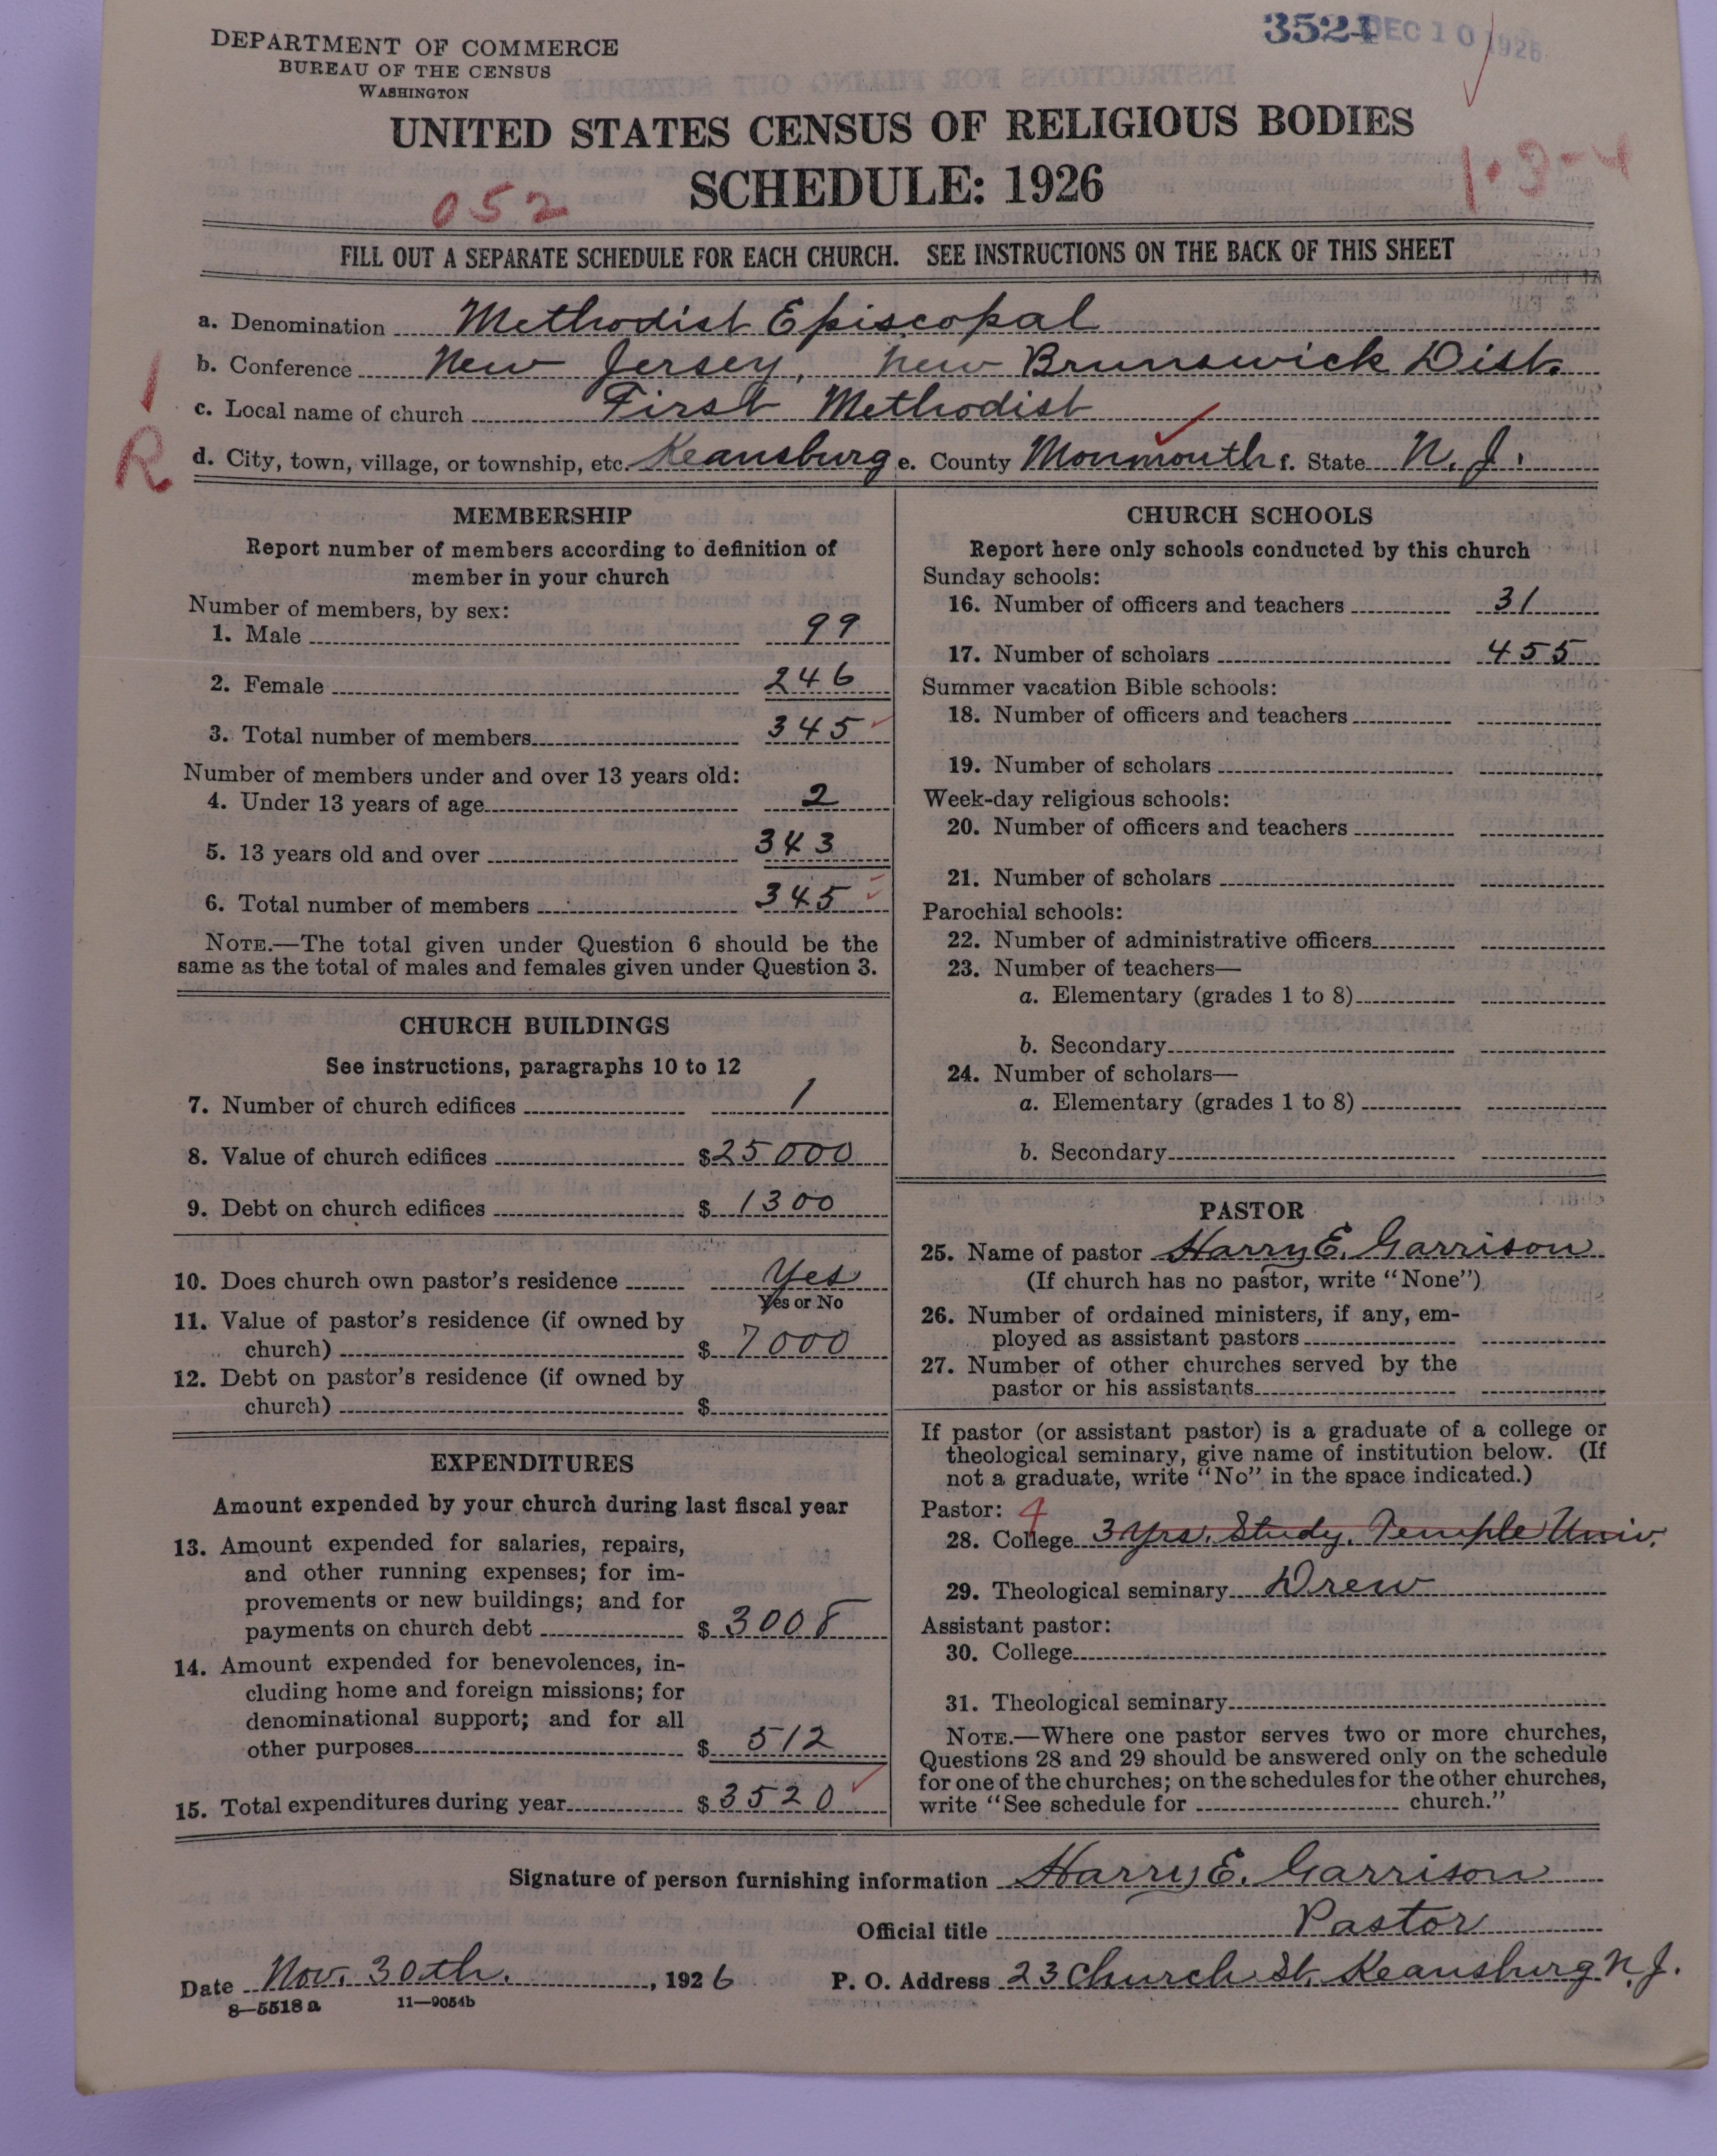 3524 DEC 10 1926
DEPARTMENT OF COMMERCE
BUREAU OF THE CENSUS
WASHINGTON
UNITED STATES CENSUS OF RELIGIOUS BODIES
SCHEDULE: 1926
052
1-3-4
FILL OUT A SEPARATE SCHEDULE FOR EACH CHURCH. SEE INSTRUCTIONS ON THE BACK OF THIS SHEET
a. Denomination Methodist Episcopal
b. Conference New Jersey, New Brunswick Dist.
1
c. Local name of church First Methodist
R
d. City, town, village, or township, etc. Keansburg e. County Monmouth f. State N. J.
MEMBERSHIP
Report number of members according to definition of
member in your church
Number of members, by sex:
1. Male 99
2. Female 246
3. Total number of members 345
Number of members under and over 13 years old:
4. Under 13 years of age 2
5. 13 years old and over 343
6. Total number of members 345
NOTE.—The total given under Question 6 should be the
same as the total of males and females given under Question 3.
CHURCH BUILDINGS
See instructions, paragraphs 10 to 12
7. Number of church edifices 1
8. Value of church edifices $25000
9. Debt on church edifices $1300
10. Does church own pastor's residence Yes
Yes or No
11. Value of pastor's residence (if owned by
church) $7000
12. Debt on pastor's residence (if owned by
church) $
EXPENDITURES
Amount expended by your church during last fiscal year
13. Amount expended for salaries, repairs,
and other running expenses; for im-
provements or new buildings; and for
payments on church debt $3008
14. Amount expended for benevolences, in-
cluding home and foreign missions; for
denominational support; and for all
other purposes $512
15. Total expenditures during year $3520
CHURCH SCHOOLS
Report here only schools conducted by this church
Sunday schools:
16. Number of officers and teachers 31
17. Number of scholars 455
Summer vacation Bible schools:
18. Number of officers and teachers
19. Number of scholars
Week-day religious schools:
20. Number of officers and teachers
21. Number of scholars
Parochial schools:
22. Number of administrative officers
23. Number of teachers—
a. Elementary (grades 1 to 8)
b. Secondary
24. Number of scholars—
a. Elementary (grades 1 to 8)
b. Secondary
PASTOR
25. Name of pastor Harry E. Garrison
(If church has no pastor, write "None")
26. Number of ordained ministers, if any, em-
ployed as assistant pastors
27. Number of other churches served by the
pastor or his assistants
If pastor (or assistant pastor) is a graduate of a college or
theological seminary, give name of institution below. (If
not a graduate, write "No" in the space indicated.)
Pastor: 4
28. College 3 Yrs. Study, Temple Univ.
29. Theological seminary Drew
Assistant pastor:
30. College
31. Theological seminary
NOTE.—Where one pastor serves two or more churches,
Questions 28 and 29 should be answered only on the schedule
for one of the churches; on the schedules for the other churches,
write "See schedule for church."
Signature of person furnishing information Harry E. Garrison
Official title Pastor
Date Nov. 30th, 1926 P. O. Address 23 Church St. Keansburg N. J.
8—5518a 11—9054b